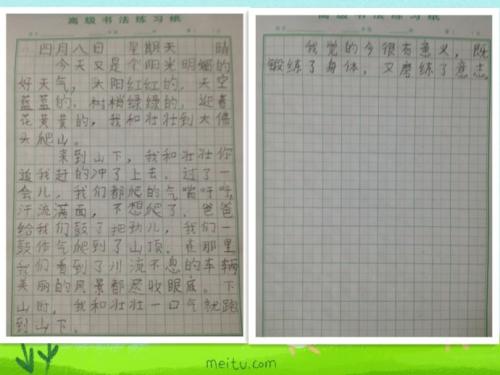 高级书法练习纸
四月八日 星期天 晴
今天又是个阳光明媚的
好天气，太阳红红的，天空
蓝蓝的，树梢绿绿的，迎春
花黄黄的，我和壮壮到大佛
头爬山。
来到山下，我和壮壮你
追我赶的冲了上去，过了一
会儿，我们都爬的气喘吁吁，
汗流满面，不想爬了，爸爸
给我们鼓了把劲儿，我们一
鼓作气爬到了山顶。在那里
我们看到了川流不息的车辆
美丽的风景都尽收眼底。下
山时，我和壮壮一口气就跑
到山下。
高级书法练习纸
我觉的今很有意义，既
锻练了身体，又磨练了意志
meitu.com